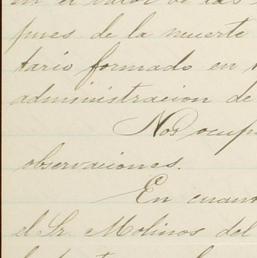 en el valor de las
pues de la muerte
tario formado en
administracion de
Nos ocup
observaciones.
En cuan
el Sr. Molinos del